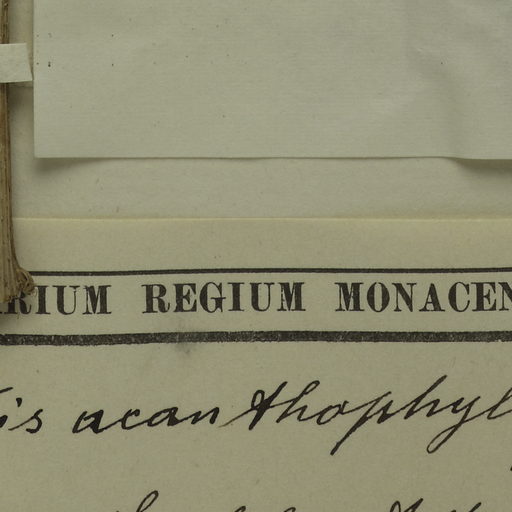 RIUM REGIUM MONACEN
is acanthophyl